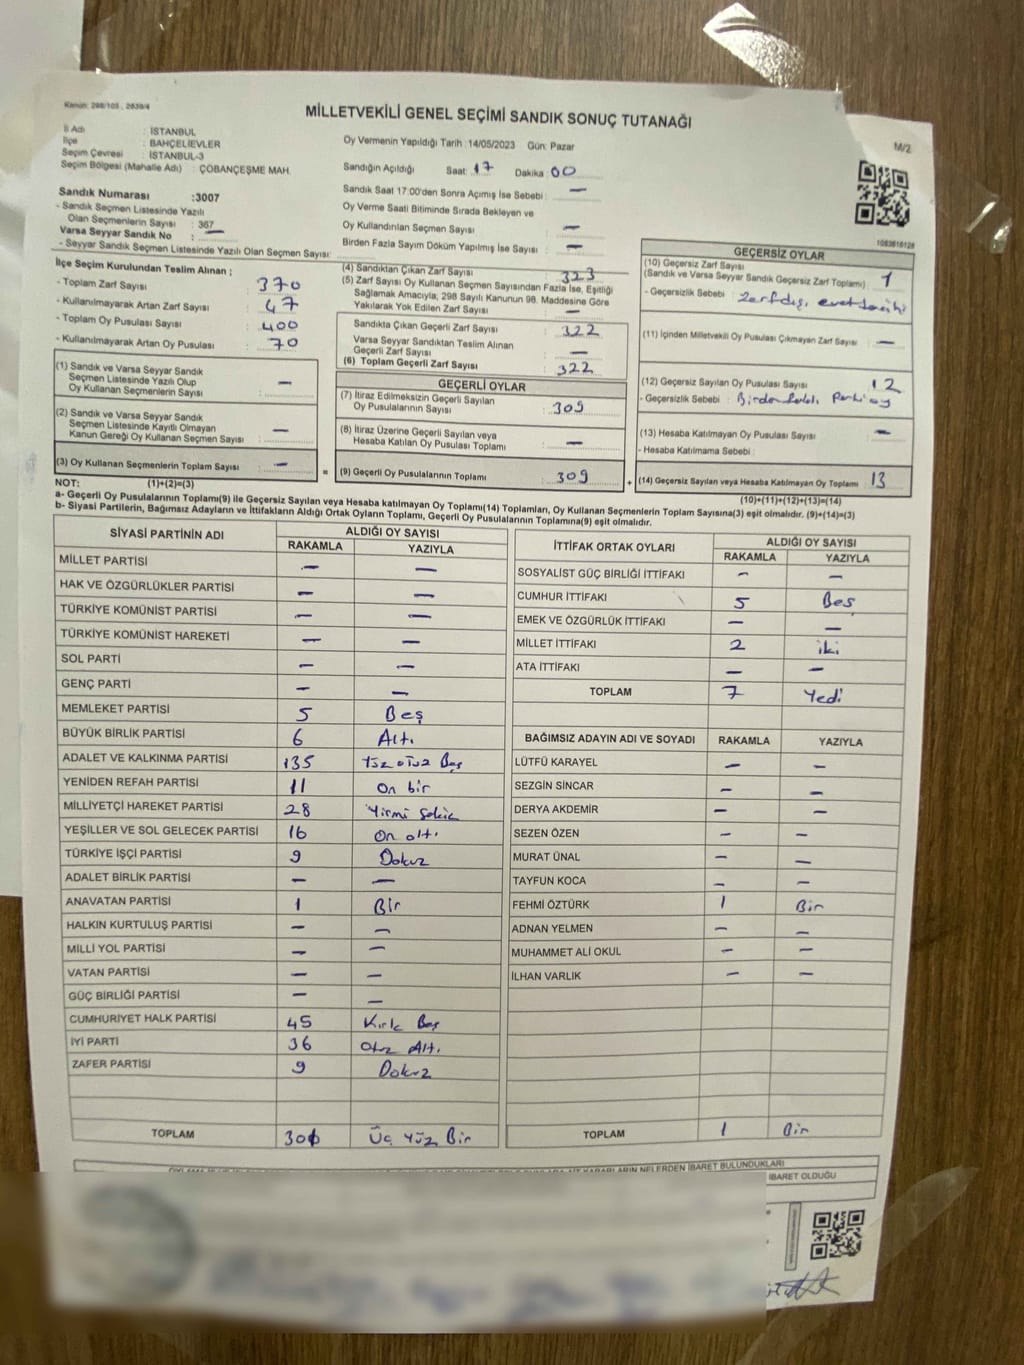 Kanun: 298/105 , 2839/4
MİLLETVEKİLİ GENEL SEÇİMİ SANDIK SONUÇ TUTANAĞI
M/2
İl Adı : İSTANBUL
İlçe : BAHÇELİEVLER
Seçim Çevresi : İSTANBUL-3
Seçim Bölgesi (Mahalle Adı) : ÇOBANÇEŞME MAH.
Oy Vermenin Yapıldığı Tarih :14/05/2023 Gün: Pazar
Sandığın Açıldığı Saat: 17 Dakika 00
Sandık Saat 17:00'den Sonra Açımış İse Sebebi : —
Oy Verme Saati Bitiminde Sırada Bekleyen ve
Oy Kullandırılan Seçmen Sayısı : —
Birden Fazla Sayım Döküm Yapılmış İse Sayısı : —
Sandık Numarası :3007
- Sandık Seçmen Listesinde Yazılı
Olan Seçmenlerin Sayısı : 367
Varsa Seyyar Sandık No : —
- Seyyar Sandık Seçmen Listesinde Yazılı Olan Seçmen Sayısı:
İlçe Seçim Kurulundan Teslim Alınan ;
- Toplam Zarf Sayısı : 370
- Kullanılmayarak Artan Zarf Sayısı : 47
- Toplam Oy Pusulası Sayısı : 400
- Kullanılmayarak Artan Oy Pusulası : 70
(1) Sandık ve Varsa Seyyar Sandık
Seçmen Listesinde Yazılı Olup
Oy Kullanan Seçmenlerin Sayısı : —
(2) Sandık ve Varsa Seyyar Sandık
Seçmen Listesinde Kayıtlı Olmayan
Kanun Gereği Oy Kullanan Seçmen Sayısı : —
(3) Oy Kullanan Seçmenlerin Toplam Sayısı : —
(4) Sandıktan Çıkan Zarf Sayısı : 323
(5) Zarf Sayısı Oy Kullanan Seçmen Sayısından Fazla İse, Eşitliği
Sağlamak Amacıyla, 298 Sayılı Kanunun 98. Maddesine Göre
Yakılarak Yok Edilen Zarf Sayısı : —
Sandıkta Çıkan Geçerli Zarf Sayısı : 322
Varsa Seyyar Sandıktan Teslim Alınan
Geçerli Zarf Sayısı : —
(6) Toplam Geçerli Zarf Sayısı : 322
GEÇERLİ OYLAR
(7) İtiraz Edilmeksizin Geçerli Sayılan
Oy Pusulalarının Sayısı : 309
(8) İtiraz Üzerine Geçerli Sayılan veya
Hesaba Katılan Oy Pusulası Toplamı : —
= (9) Geçerli Oy Pusulalarının Toplamı : 309
1083618128
GEÇERSİZ OYLAR
(10) Geçersiz Zarf Sayısı
(Sandık ve Varsa Seyyar Sandık Geçersiz Zarf Toplamı) : 1
- Geçersizlik Sebebi : Zarf dışı
(11) İçinden Milletvekili Oy Pusulası Çıkmayan Zarf Sayısı : —
(12) Geçersiz Sayılan Oy Pusulası Sayısı : 12
- Geçersizlik Sebebi : Birden fazla Parti oy
(13) Hesaba Katılmayan Oy Pusulası Sayısı : —
- Hesaba Katılmama Sebebi :
+ (14) Geçersiz Sayılan veya Hesaba Katılmayan Oy Toplamı : 13
NOT: (1)+(2)=(3)
(10)+(11)+(12)+(13)=(14)
a- Geçerli Oy Pusulalarının Toplamı(9) ile Geçersiz Sayılan veya Hesaba katılmayan Oy Toplamı(14) Toplamları, Oy Kullanan Seçmenlerin Toplam Sayısına(3) eşit olmalıdır. (9)+(14)=(3)
b- Siyasi Partilerin, Bağımsız Adayların ve İttifakların Aldığı Ortak Oyların Toplamı, Geçerli Oy Pusulalarının Toplamına(9) eşit olmalıdır.
SİYASİ PARTİNİN ADI ALDIĞI OY SAYISI
RAKAMLA YAZIYLA
MİLLET PARTİSİ — —
HAK VE ÖZGÜRLÜKLER PARTİSİ — —
TÜRKİYE KOMÜNİST PARTİSİ — —
TÜRKİYE KOMÜNİST HAREKETİ — —
SOL PARTİ — —
GENÇ PARTİ — —
MEMLEKET PARTİSİ 5 Beş
BÜYÜK BİRLİK PARTİSİ 6 Altı
ADALET VE KALKINMA PARTİSİ 135 Yüz otuz Beş
YENİDEN REFAH PARTİSİ 11 On bir
MİLLİYETÇİ HAREKET PARTİSİ 28 Yirmi Sekiz
YEŞİLLER VE SOL GELECEK PARTİSİ 16 On altı
TÜRKİYE İŞÇİ PARTİSİ 9 Dokuz
ADALET BİRLİK PARTİSİ — —
ANAVATAN PARTİSİ 1 Bir
HALKIN KURTULUŞ PARTİSİ — —
MİLLİ YOL PARTİSİ — —
VATAN PARTİSİ — —
GÜÇ BİRLİĞİ PARTİSİ — —
CUMHURİYET HALK PARTİSİ 45 Kırk Beş
İYİ PARTİ 36 Otuz Altı
ZAFER PARTİSİ 9 Dokuz
TOPLAM 301 Üç Yüz Bir
İTTİFAK ORTAK OYLARI ALDIĞI OY SAYISI
RAKAMLA YAZIYLA
SOSYALİST GÜÇ BİRLİĞİ İTTİFAKI — —
CUMHUR İTTİFAKI 5 Beş
EMEK VE ÖZGÜRLÜK İTTİFAKI — —
MİLLET İTTİFAKI 2 iki
ATA İTTİFAKI — —
TOPLAM 7 Yedi
BAĞIMSIZ ADAYIN ADI VE SOYADI RAKAMLA YAZIYLA
LÜTFÜ KARAYEL — —
SEZGİN SİNCAR — —
DERYA AKDEMİR — —
SEZEN ÖZEN — —
MURAT ÜNAL — —
TAYFUN KOCA — —
FEHMİ ÖZTÜRK 1 Bir
ADNAN YELMEN — —
MUHAMMET ALİ OKUL — —
İLHAN VARLIK — —
TOPLAM 1 Bir
NELERDEN İBARET BULUNDUKLARI
İBARET OLDUĞU